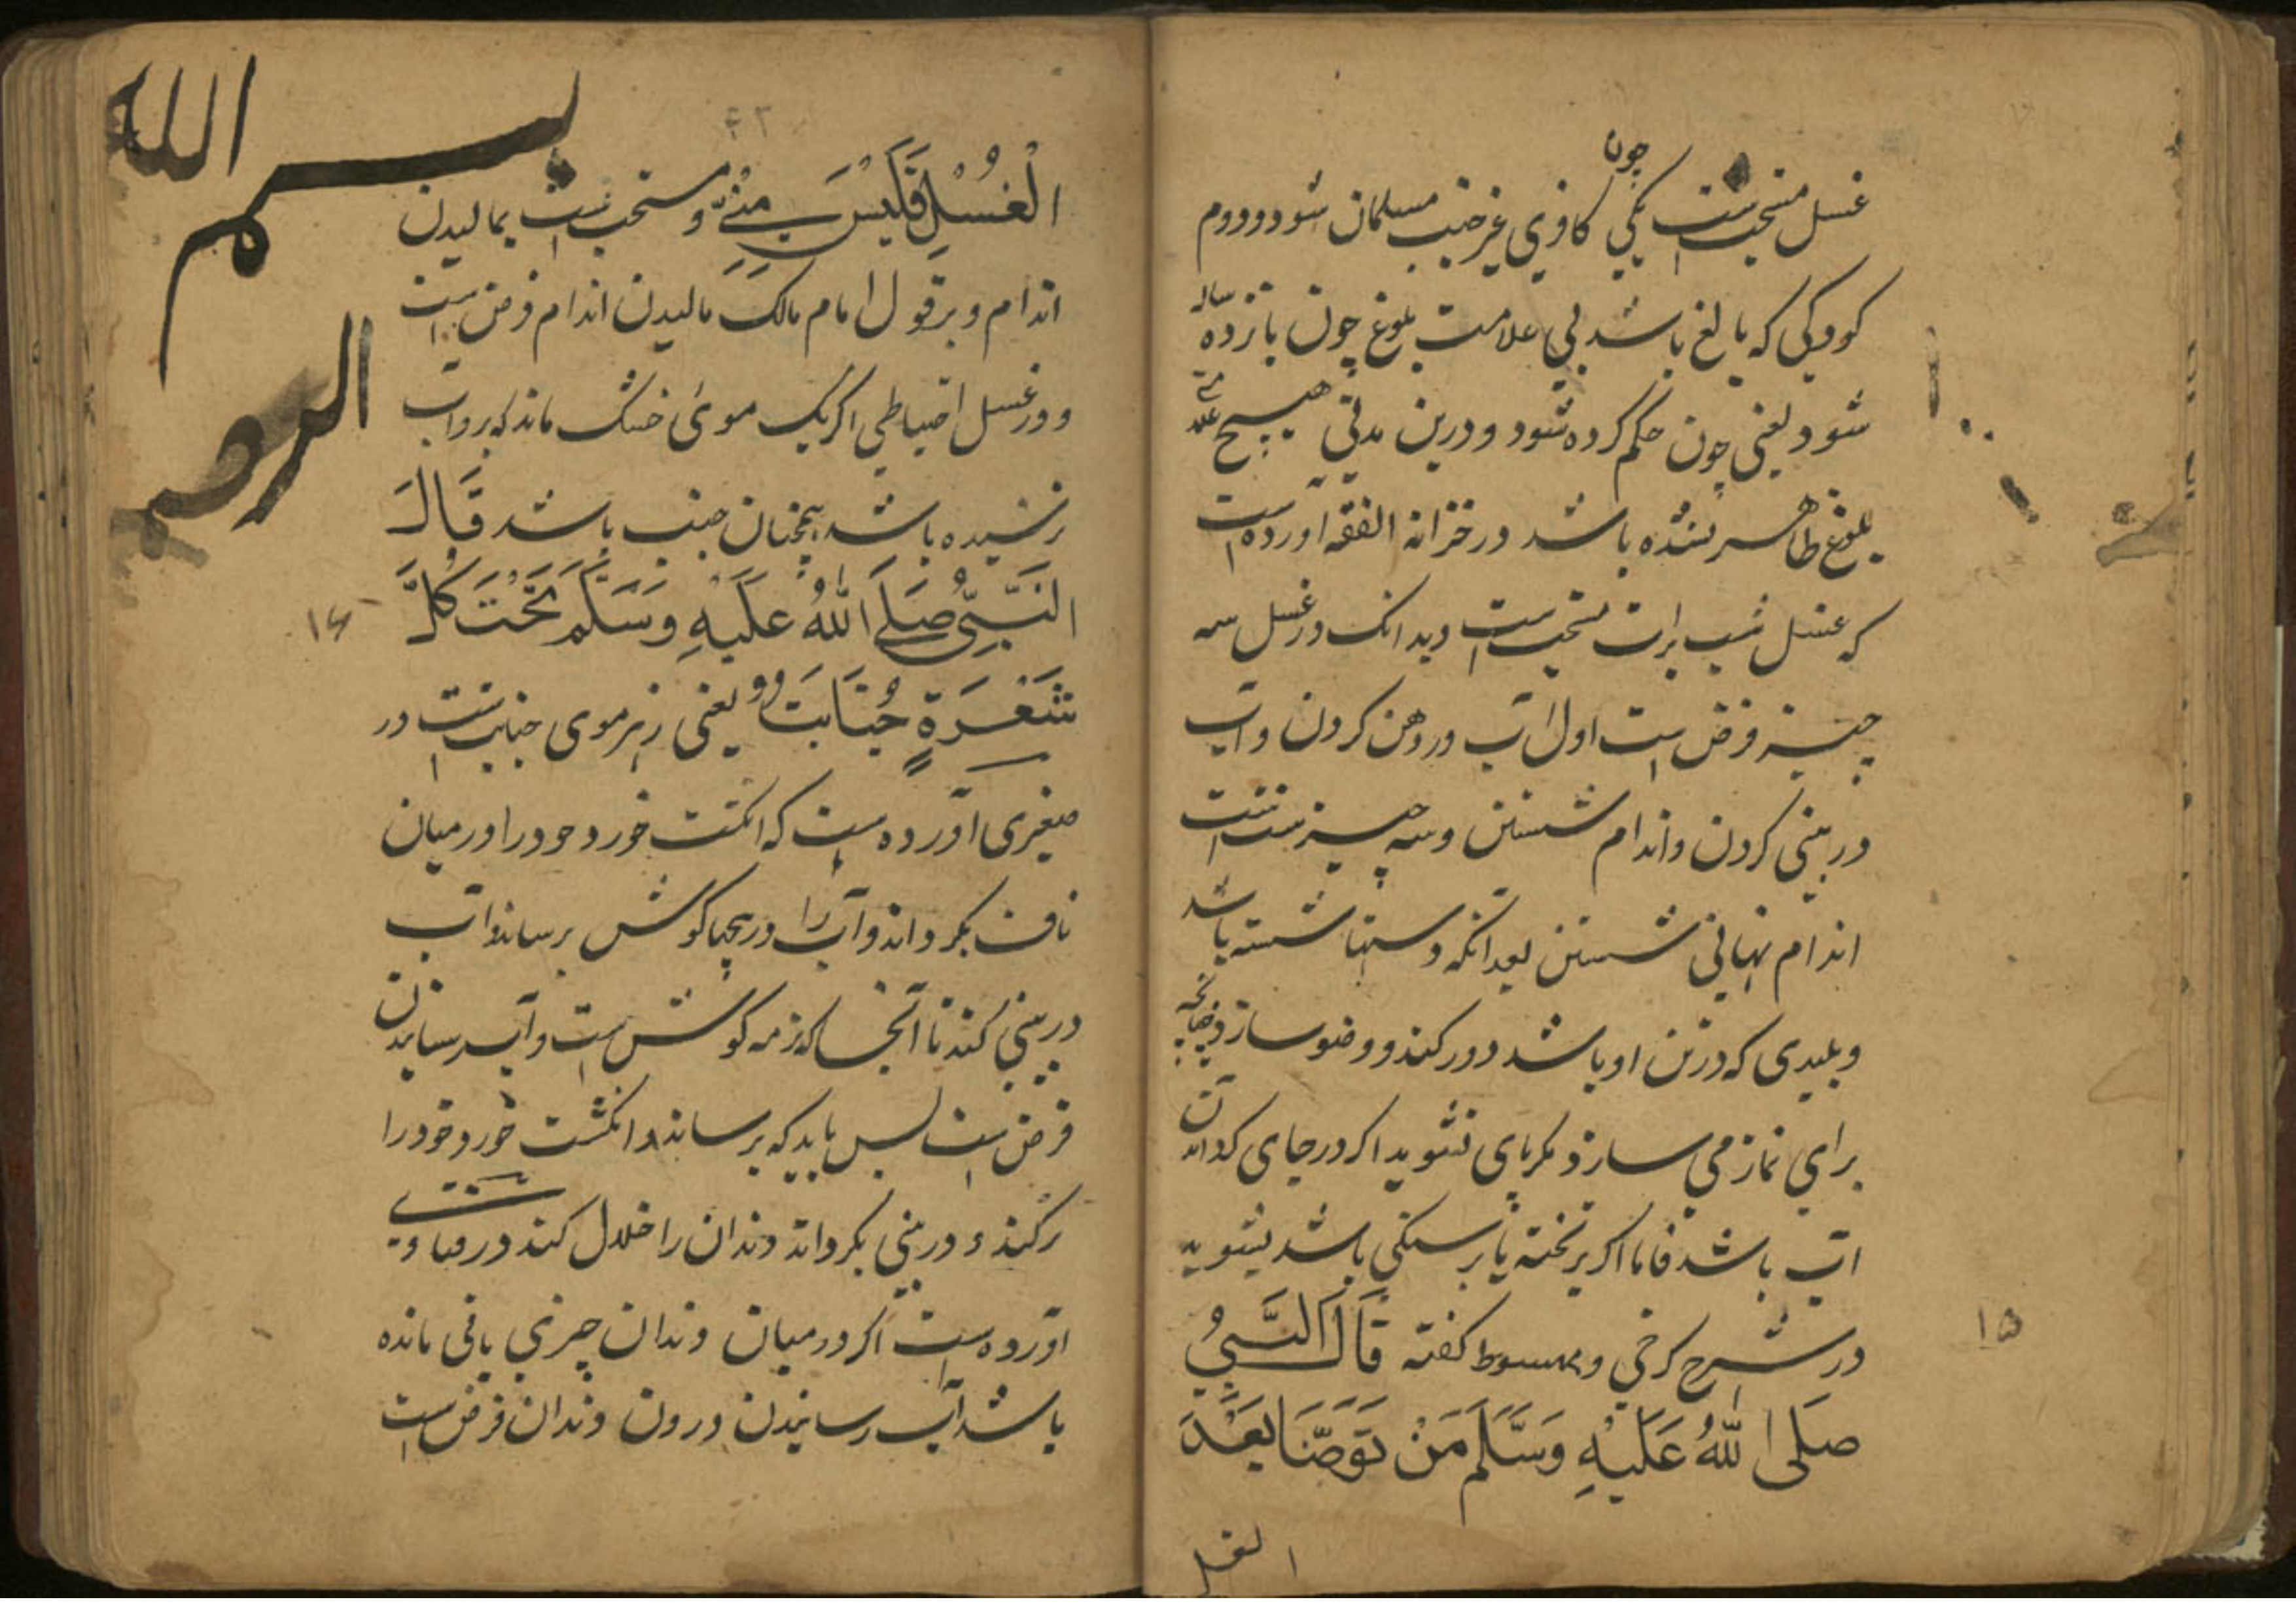 غسل مستحب است یکی چون کافری غیر جنب مسلمان شود و دوم
کودکی که بالغ باشد بی علامت بلوغ چون پانزده ساله
شود یعنی چون حکم کرده شود و درین مدتی هیچ
بلوغ ظاهر نشده باشد در خزانه الفقه آورده است
که غسل شب برات مستحب است و بدانک در غسل سه
چیز فرض است اول آب در دهن کردن و آب
در بینی کردن و اندام شستن و سه چیز سنت است
اندام نهانی شستن بعد انکه دستها شسته باشد
و پلیدی که در تن او باشد دور کند و وضو سازد چنانچه
برای نماز می سازد مگر پای نشوید اگر در جای کردان
آب باشد فاما اگر بر تخته یا بر سنگی باشد بشوید
در شرح کرخی و مبسوط گفته قَالَ النَّبِیُّ
صَلَی اللّٰهُ عَلَیْهِ وَسَلَّمَ مَنْ تَوَضَّا بَعْدَ
الغسل
۱۵
الْغُسْلِ فَلَیْسَ مِنِّی و مستحب است بمالیدن
اندام و بر قول امام مالک مالیدن اندام فرض است
و در غسل احتیاطی اگر یک موی خشک ماند که برو آب
نرسیده باشد همچنان جنب باشد قَالَ
النَّبِیُّ صَلَی اللّٰهُ عَلَیْهِ وَسَلَّمَ تَحْتَ کُلِّ
شَعْرَةٍ جُنَابَت یعنی زیر موی جنابت است در
صغیری آورده است که انگشت خورد خود را در میان
ناف بگرداند و آب را در پیچهاء گوش برساند و آب
در بینی کند تا آنجا که نرمه گوش است و آب رسانیدن
فرض است پس باید که برساند و انگشت خورد خود را
تر کند و در بینی بگرداند و دندان را خلال کند در فتاوی
آورده است اگر در میان دندان چیزی باقی مانده
باشد آب رسانیدن درون دندان فرض است
۱۶
بسم
الله
الرحم